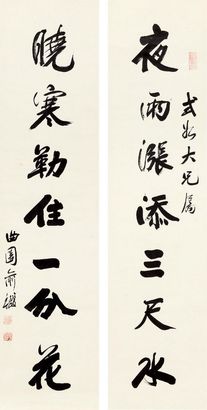 夜雨漲添三尺水
式如大兄屬
曉寒勒住一分花
曲園俞樾